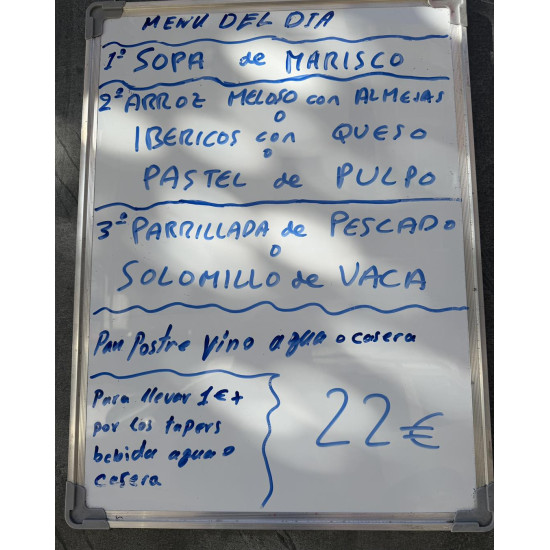 MENU DEL DIA
1º SOPA de MARISCO
2º ARROZ MELOSO con ALMEJAS
o
IBERICOS con QUESO
o
PASTEL de PULPO
3º PARRILLADA de PESCADO
o
SOLOMILLO de VACA
Pan Postre Vino agua o casera
Para llevar 1€ +
por los tapers
bebida agua o
casera
22€